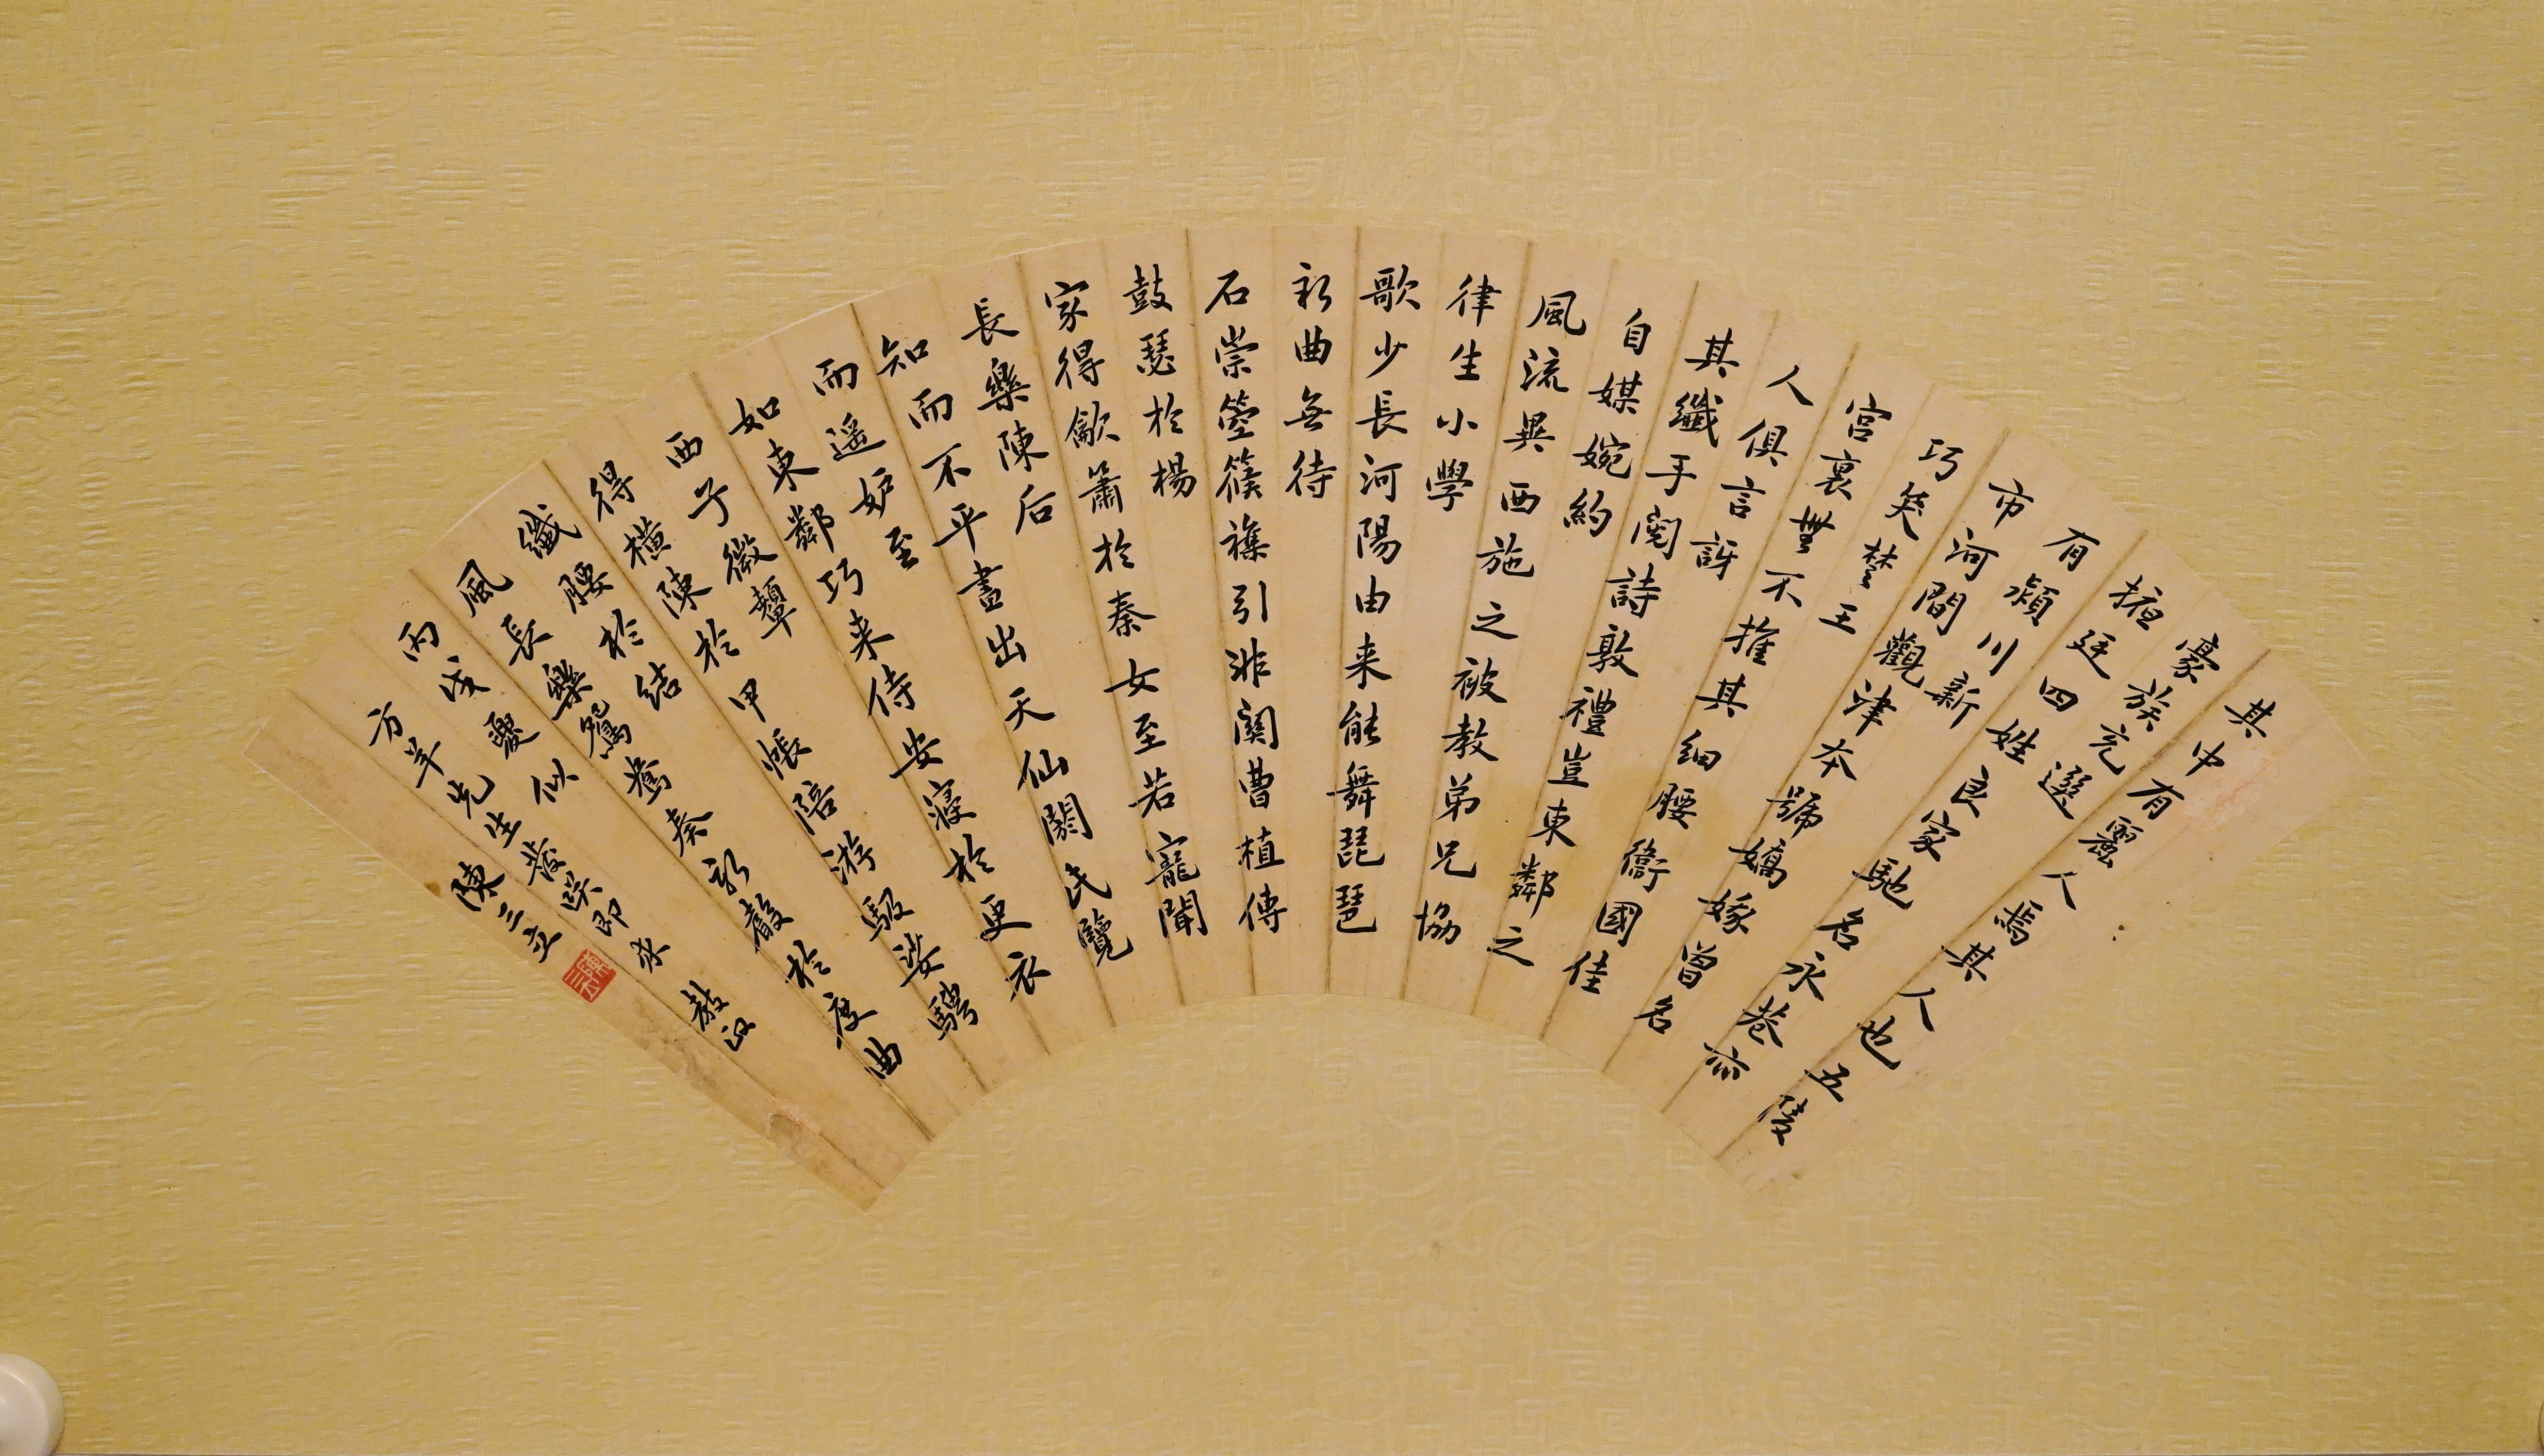 其中有麗人焉其人也五陵
豪族充選
掖廷四姓良家馳名永巷亦
有潁川新
市河間觀津本號嬌嫁曾名
巧笑楚王
宮裏無不推其細腰衞國佳
人俱言訝
其纖手閱詩敦禮豈東鄰之
自媒婉約
風流異西施之被教弟兄協
律生小學
歌少長河陽由来能舞琵琶
新曲無待
石崇箜篌襍引非関曹植傳
鼓瑟於楊
家得歙簫於秦女至若寵聞
長樂陳后
知而不平畫出天仙閼氏覽
而遥妒至
如東鄰巧来侍安寢於更衣
西子微顰
得橫陳於甲帳陪游馺娑騁
纖腰於結
風長樂鴛鴦奏新聲於度曲
丙戌夏似
方羊先生發咲即求 教正
陳三立